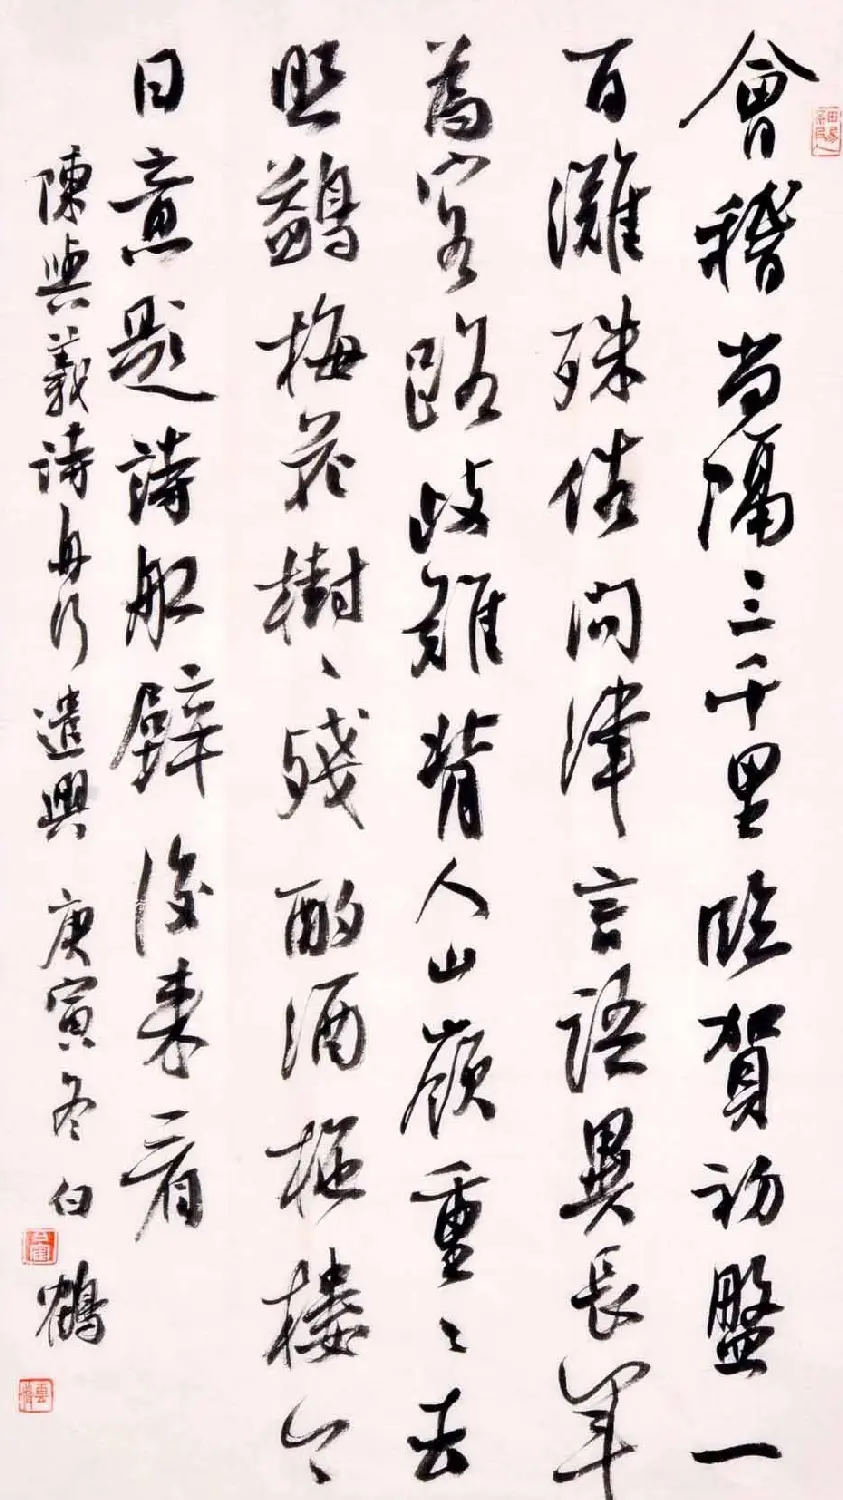 會稽尚隔三千里臨賀初盤一
百灘殊俗問津言語異長年
為客路歧難背人山嶺重〻去
照鷁梅花樹〻殘酌酒柂樓今
日意題詩船壁後來看
陳與義詩舟行遣興 庚寅冬 白鶴